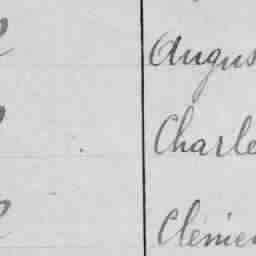 Augus
Charle
Clemen